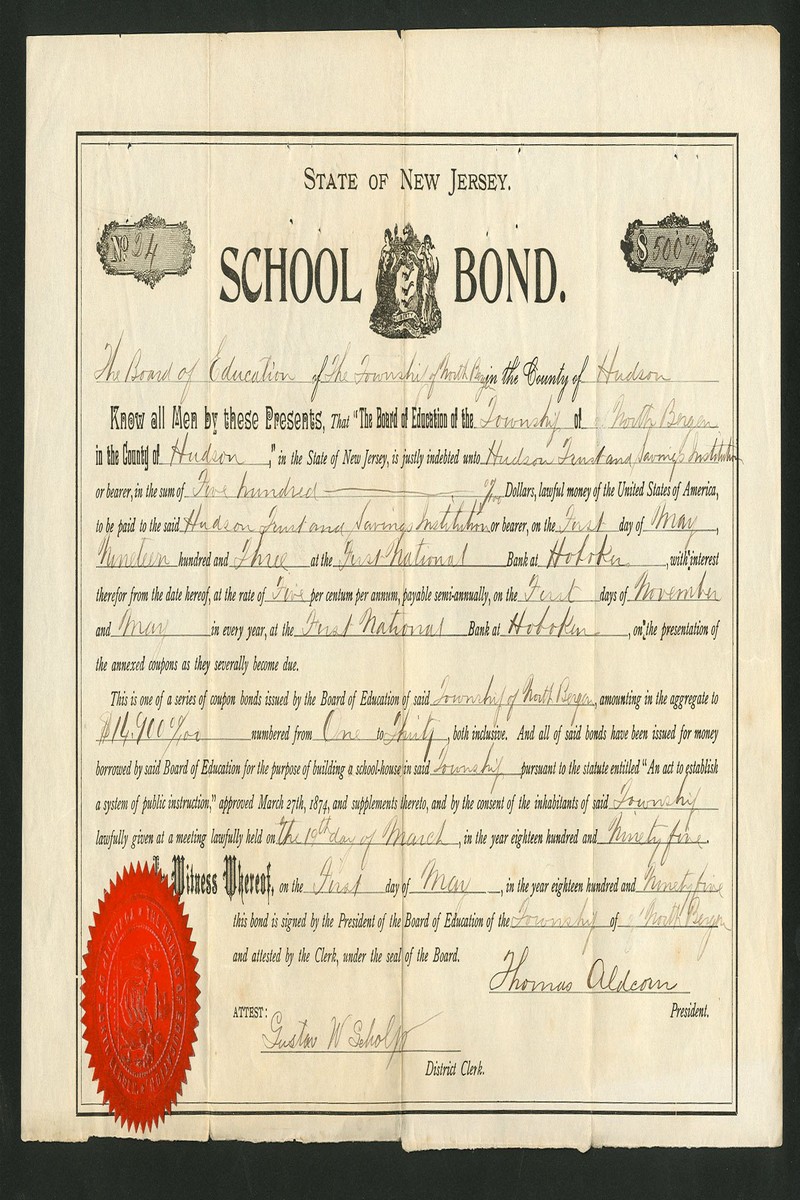 STATE OF NEW JERSEY.
No. 24
$ 500 00/100
SCHOOL BOND.
The Board of Education of The Township of North Bergen in the County of Hudson
Know all Men by these Presents, That "The Board of Education of the Township of North Bergen
in the County of Hudson," in the State of New Jersey, is justly indebted unto Hudson Trust and Savings Institution
or bearer, in the sum of Five hundred 00/100 Dollars, lawful money of the United States of America,
to be paid to the said Hudson Trust and Savings Institution or bearer, on the First day of May,
Nineteen hundred and Three at the First National Bank at Hoboken, with interest
therefor from the date hereof, at the rate of Five per centum per annum, payable semi-annually, on the First days of November
and May in every year, at the First National Bank at Hoboken, on the presentation of
the annexed coupons as they severally become due.
This is one of a series of coupon bonds issued by the Board of Education of said Township of North Bergen, amounting in the aggregate to
$14,900 00/00 numbered from One to Thirty, both inclusive. And all of said bonds have been issued for money
borrowed by said Board of Education for the purpose of building a school-house in said Township pursuant to the statute entitled "An act to establish
a system of public instruction," approved March 27th, 1874, and supplements thereto, and by the consent of the inhabitants of said Township
lawfully given at a meeting lawfully held on The 19th day of March, in the year eighteen hundred and Ninety five.
In Witness Whereof, on the First day of May, in the year eighteen hundred and Ninety five
this bond is signed by the President of the Board of Education of the Township of North Bergen
and attested by the Clerk, under the seal of the Board.
Thomas Aldcorn
President.
ATTEST:
Gustav W Scholp
District Clerk.